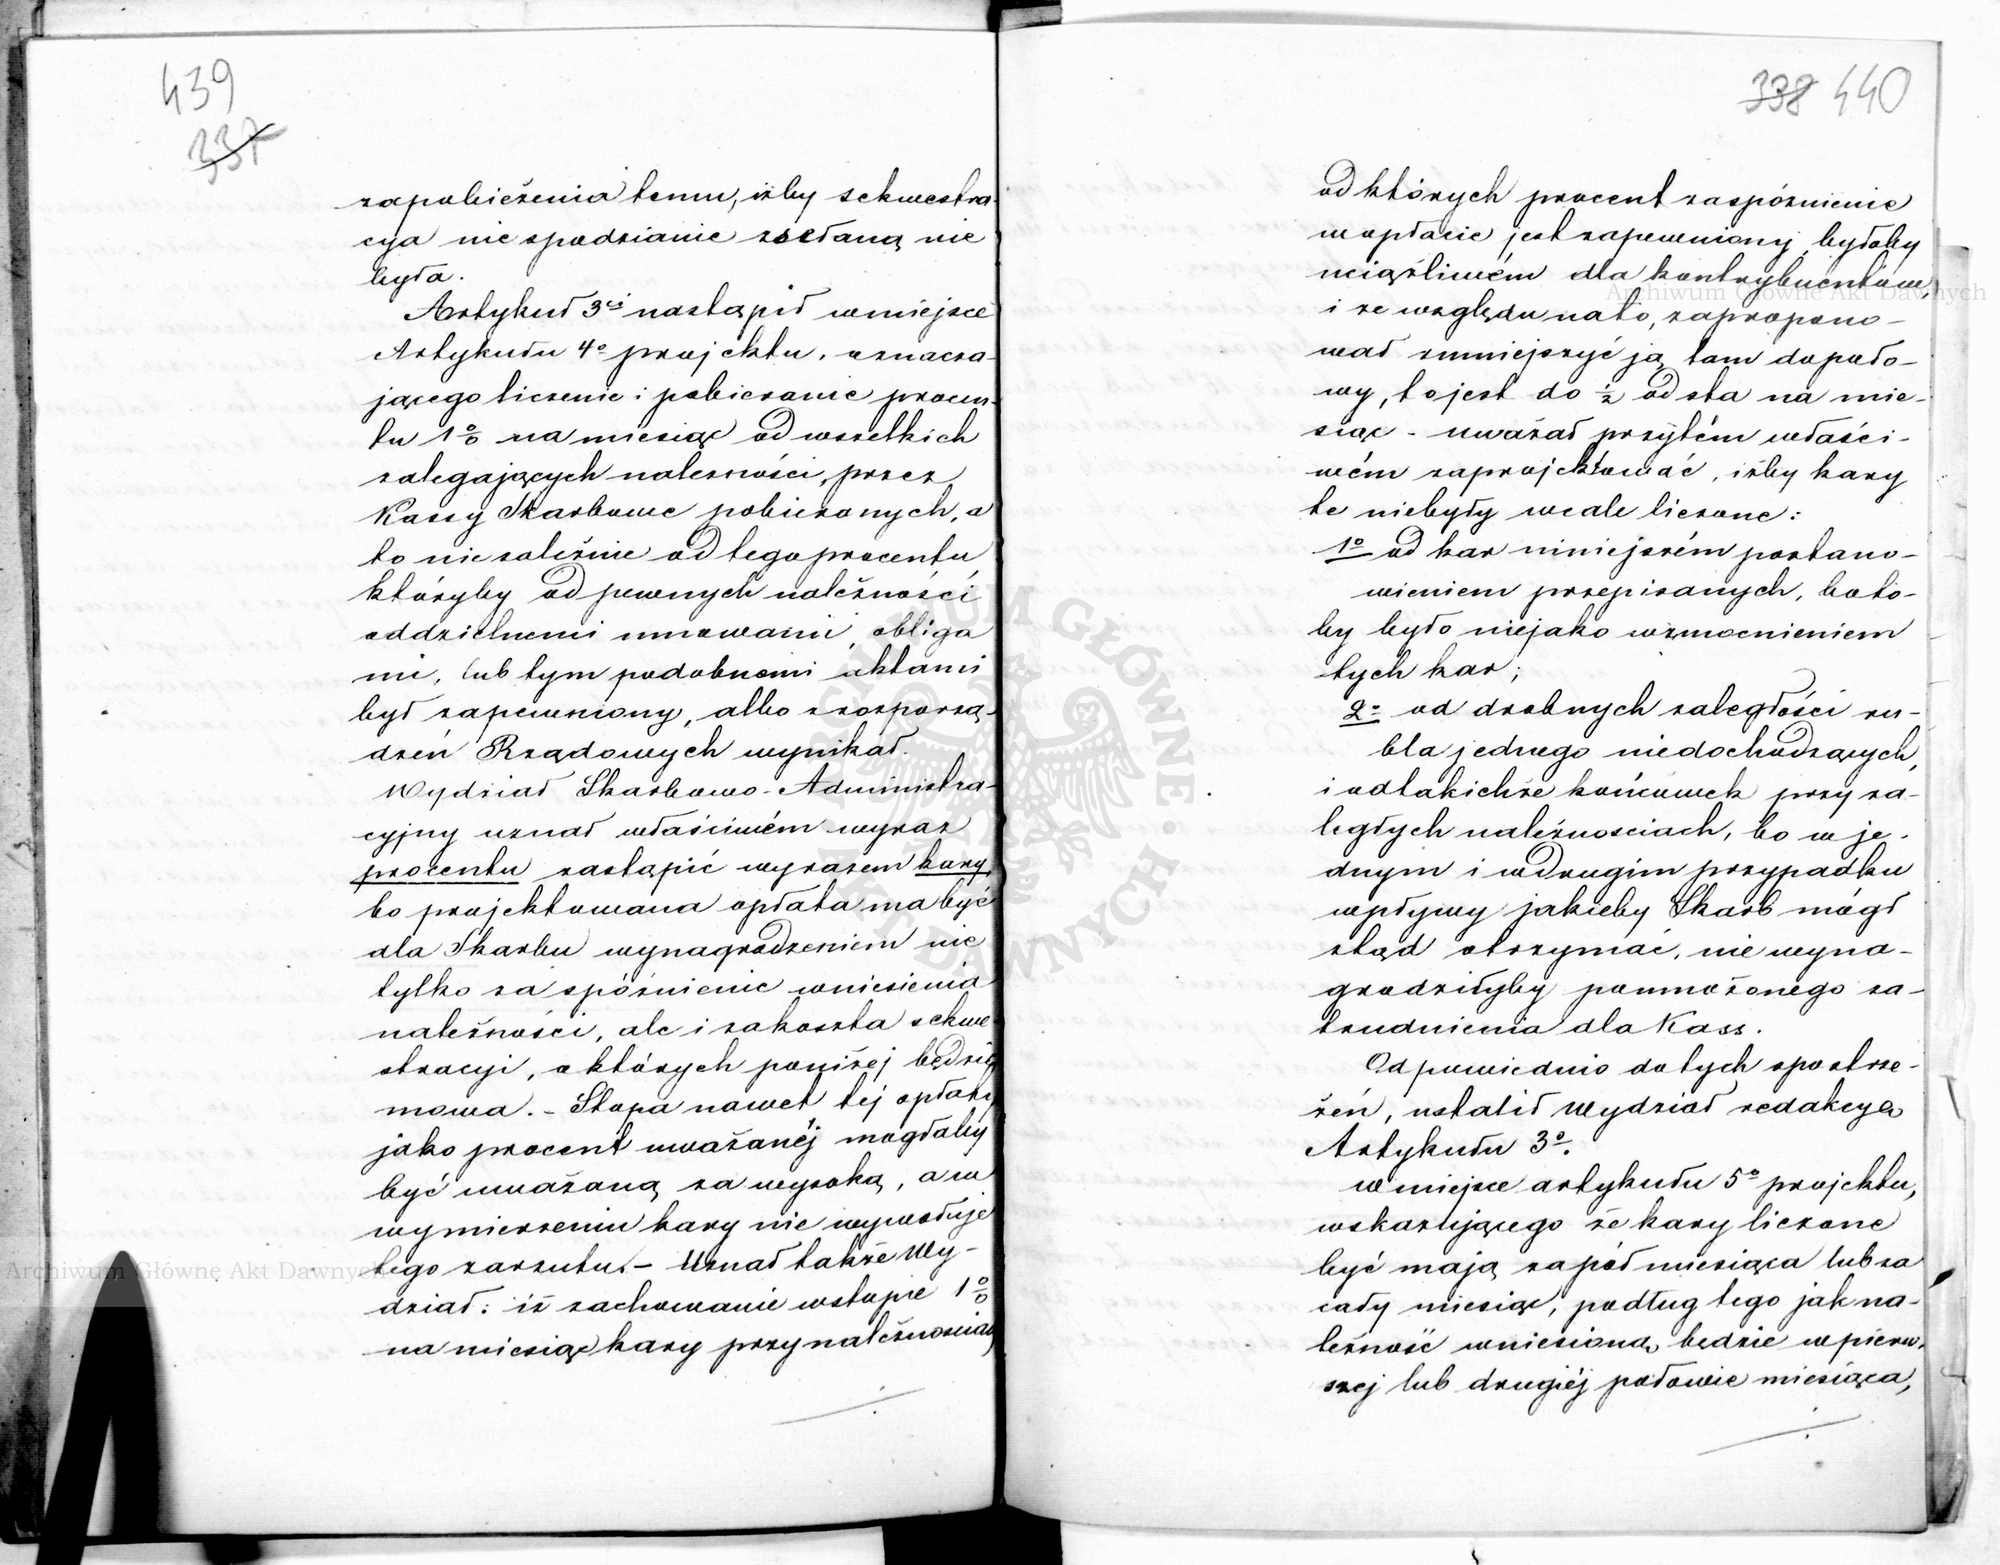 439
337
zapobieżenia temu, iżby sekwestra-
cya niespodzianie zesłaną nie
była.
Artykuł 3ci nastąpił w miejsce
Artykułu 4o projektu, oznacza-
jącego liczenie i pobieranie procen-
tu 1% na miesiąc od wszelkich
zalegających należności, przez
Kassy Skarbowe pobieranych, a
to niezależnie od tego procentu,
któryby od pewnych należności
oddzielnemi umowami, obliga
mi, lub tym podobnemi aktami
był zapewniony, albo z rozporzą-
dzeń Rządowych wynikał.
Wydział Skarbowo-Administra-
cyjny uznał właściwém wyraz
procentu zastąpić wyrazem kary,
bo projektowana opłata ma być
dla Skarbu wynagrodzeniem nie
tylko za spóźnienie wniesienia
należności, ale i za koszta sekwe-
stracyi, o których poniżej będzie
mowa. - Stopa nawet tej opłaty
jako procent uważanéj mogłaby
być uważaną za wysoką, a w
wymierzeniu kary nie wywołuje
tego zarzutu. - Uznał także Wy-
dział: iż zachowanie w stopie 1%
na miesiąc kary przy należnościach,
338 440
od których procent za spóźnienie
w opłacie jest zapewniony byłoby
uciążliwém dla kontrybuentów,
i ze względu na to, zapropono-
wał zmniejszyć ją tam do poło-
wy, to jest do ½ od sta na mie-
siąc - uważał przytém właści-
wém zaprojektować, iżby kary
te niebyły wcale liczone:
1o od kar niniejszém postano-
wieniem przepisanych, bo to-
by było niejako wzmocnieniem
tych kar;
2o od drobnych zaległości ru-
bla jednego niedochodzących,
i od takichże końcówek przy za-
ległych należnosciach, bo w je-
dnym i w drugim przypadku
wpływy jakieby Skarb mógł
ztąd otrzymać, nie wyna-
grodziłyby pomnożonego za-
trudnienia dla Kass.
Odpowiednio do tych spostrze-
żeń, ustalił Wydział redakcyą
Artykułu 3o.
W miejsce artykułu 5o projektu,
wskazującego że kary liczone
być mają za pół miesiąca lub za
cały miesiąc, podług tego jak na-
leżność wniesioną będzie w pierw-
szej lub drugiéj połowie miesiąca,
Archiwum Główne Akt Dawnych
Archiwum Główne Akt Dawnych
ARCHIWUM GŁÓWNE AKT DAWNYCH